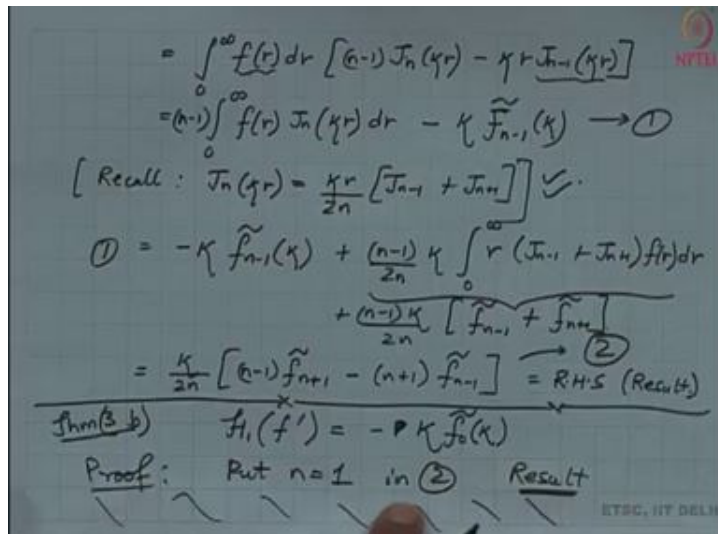 = ∫₀^∞ f(r) dr [(n-1) Jn(κr) - κr Jn-1(κr)]
NPTEL
= (n-1) ∫₀^∞ f(r) Jn(κr) dr - κ f̃n-1(κ) → ①
[Recall: Jn(κr) = κr/2n [Jn-1 + Jn+1]]
① = -κ f̃n-1(κ) + (n-1)/2n κ ∫₀^∞ r (Jn-1 + Jn+1) f(r) dr
+ (n-1)κ/2n [f̃n-1 + f̃n+1]
= κ/2n [(n-1) f̃n+1 - (n+1) f̃n-1] → ② = R.H.S (Result)
Thm(3 b) H₁(f') = - κ f̃₀(κ)
Proof: Put n=1 in ② Result
ETSC, IIT DELH